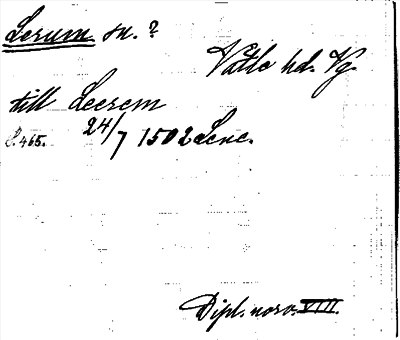 Lerum sn. ?
Vättle hd. Vg.
till Leerem
24/7 1502 Lene.
S. 465.
Dipl. norv. VIII.